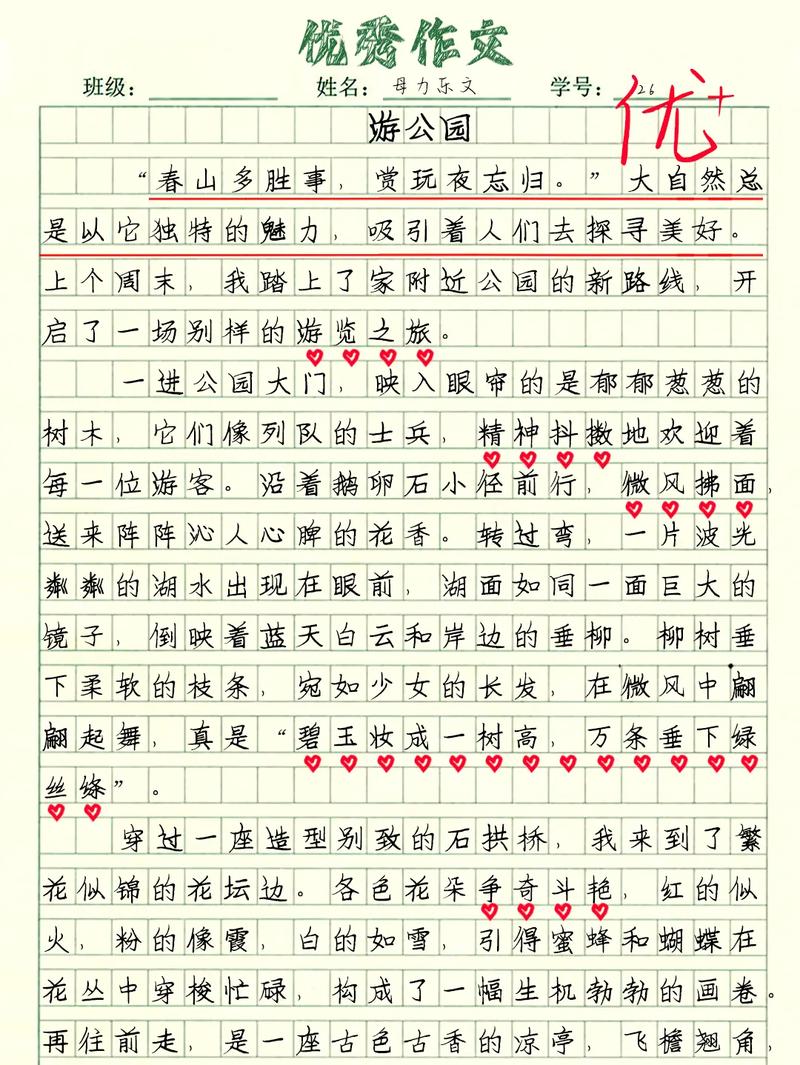 优秀作文
班级： 姓名：母力乐文 学号：26
优+
游公园
“春山多胜事，赏玩夜忘归。”大自然总
是以它独特的魅力，吸引着人们去探寻美好。
上个周末，我踏上了家附近公园的新路线，开
启了一场别样的游览之旅。
一进公园大门，映入眼帘的是郁郁葱葱的
树木，它们像列队的士兵，精神抖擞地欢迎着
每一位游客。沿着鹅卵石小径前行，微风拂面，
送来阵阵沁人心脾的花香。转过弯，一片波光
粼粼的湖水出现在眼前，湖面如同一面巨大的
镜子，倒映着蓝天白云和岸边的垂柳。柳树垂
下柔软的枝条，宛如少女的长发，在微风中翩
翩起舞，真是“碧玉妆成一树高，万条垂下绿
丝绦”。
穿过一座造型别致的石拱桥，我来到了繁
花似锦的花坛边。各色花朵争奇斗艳，红的似
火，粉的像霞，白的如雪，引得蜜蜂和蝴蝶在
花丛中穿梭忙碌，构成了一幅生机勃勃的画卷。
再往前走，是一座古色古香的凉亭，飞檐翘角，